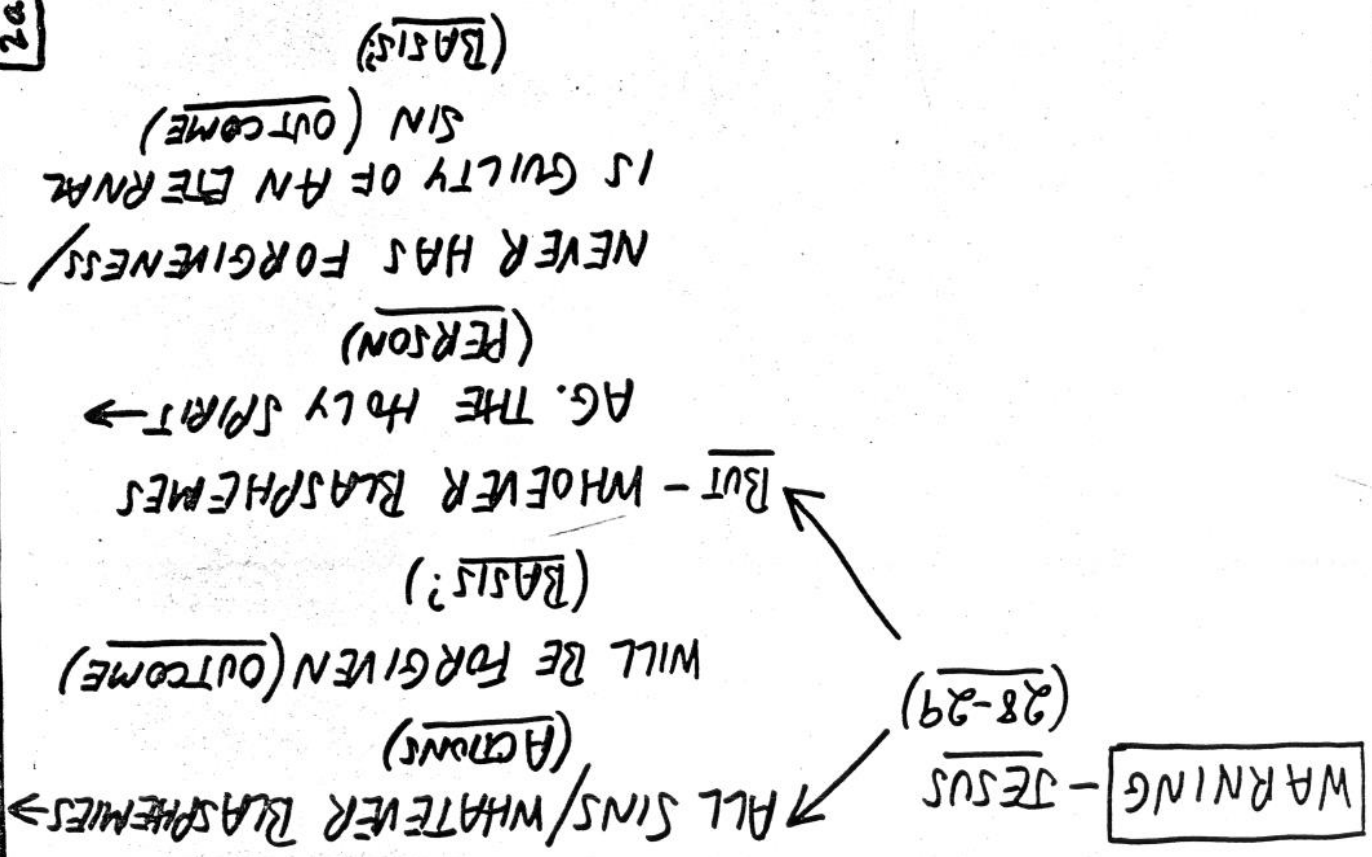 WARNING - JESUS
(28-29)
ALL SINS/WHATEVER BLASPHEMIES →
(ACTIONS)
WILL BE FORGIVEN (OUTCOME)
(BASIS?)
BUT - WHOEVER BLASPHEMES
AG. THE HOLY SPIRIT →
(PERSON)
NEVER HAS FORGIVENESS/
IS GUILTY OF AN ETERNAL
SIN (OUTCOME)
(BASIS?)
2a